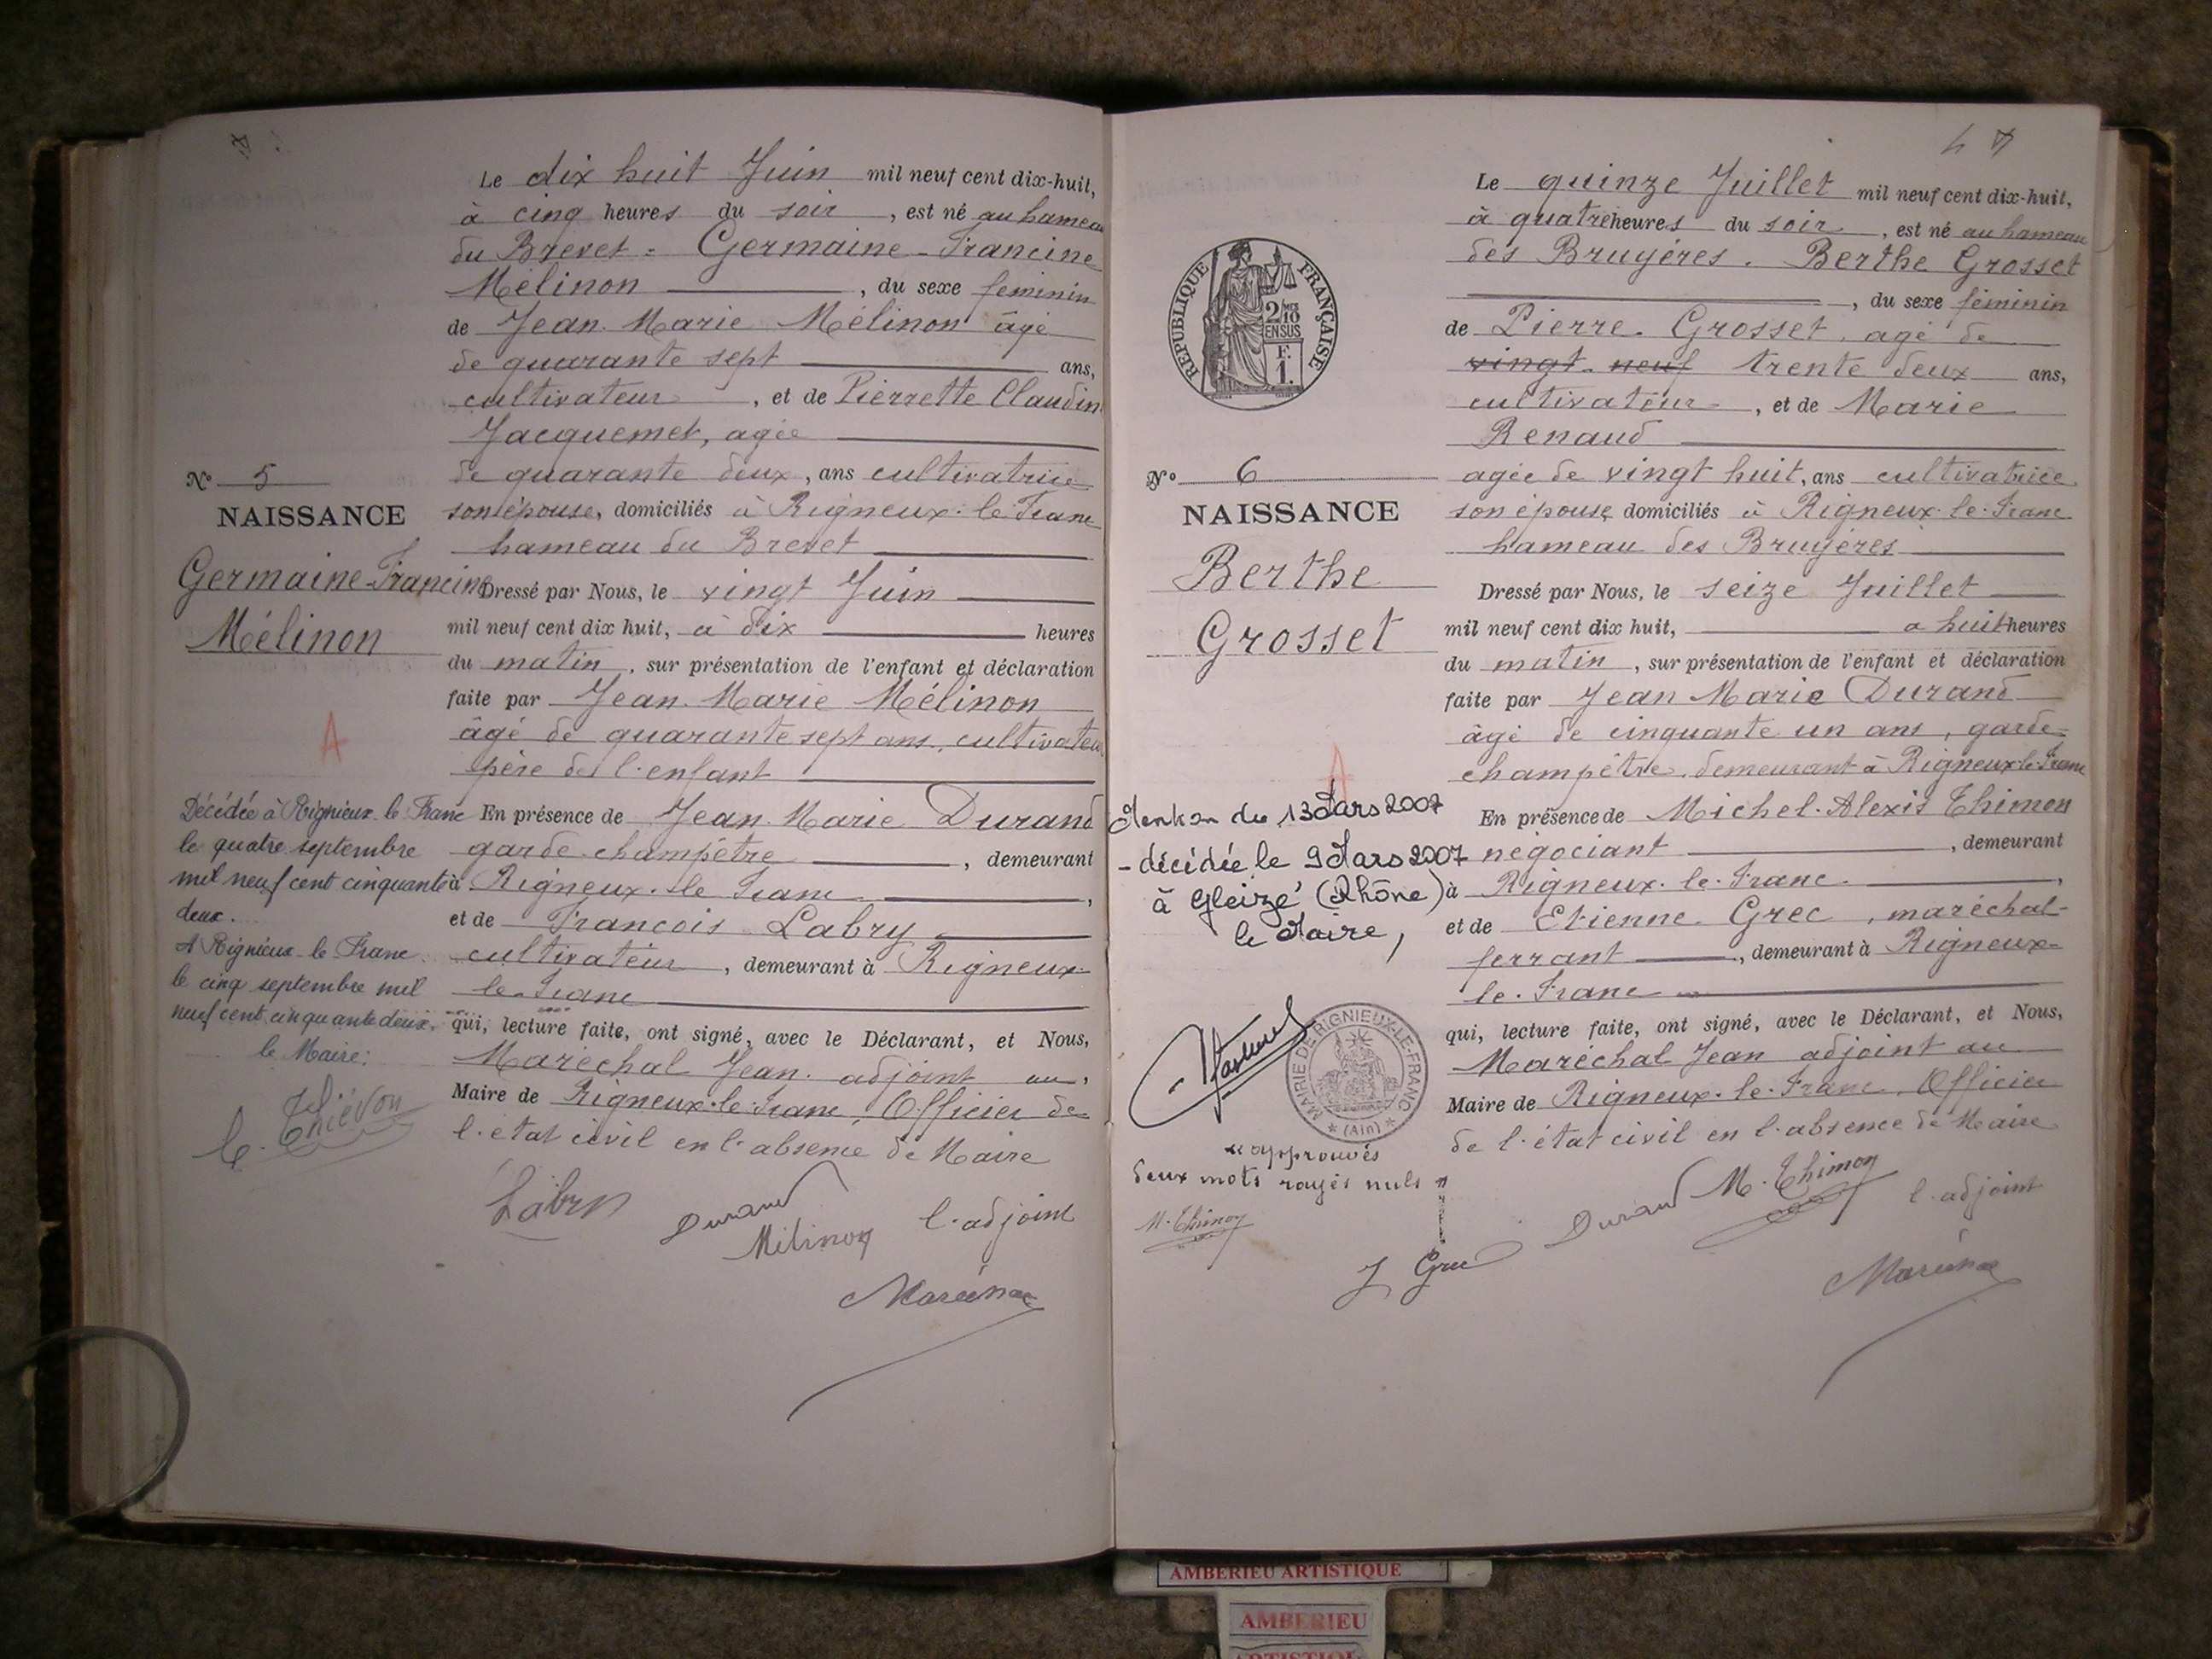 Le dix huit Juin mil neuf cent dix-huit,
à cinq heures du soir, est né au hameau
du Brevet = Germaine-Francine
Mélinon, du sexe féminin
de Jean Marie Mélinon âgé
de quarante sept ans,
cultivateur, et de Pierrette Claudin
Jacquemet, agée
de quarante deux, ans cultivatrice
son épouse, domiciliés à Rigneux-le-Franc
hameau du Brevet
Dressé par Nous, le vingt Juin
mil neuf cent dix huit, à dix heures
du matin, sur présentation de l'enfant et déclaration
faite par Jean Marie Mélinon
âgé de quarante sept ans, cultivateu
père de l'enfant
En présence de Jean Marie Durand
garde-champêtre, demeurant
à Rigneux-le Franc,
et de Francois Labry
cultivateur, demeurant à Rigneux-
le-Franc
qui, lecture faite, ont signé, avec le Déclarant, et Nous,
Maréchal Jean adjoint au
Maire de Rigneux-le-Franc, Officier de
l'état civil en l'absence de Maire
Labry
Durand
Mélinon
l'adjoint
Maréchal
N° 5
NAISSANCE
Germaine-Francine
Mélinon
A
Décédée à Rignieux le Franc
le quatre septembre
mil neuf cent cinquante
deux.
A Rignieux le Franc
le cinq septembre mil
neuf cent cinquante deux.
le Maire:
C. Thiévon
Le quinze Juillet mil neuf cent dix-huit,
à quatre heures du soir, est né au hameau
des Bruyères. Berthe Grosset
, du sexe féminin
de Pierre Grosset, agé de
vingt neuf trente deux ans,
cultivateur, et de Marie
Renaud
agée de vingt huit, ans cultivatrice
son épouse domiciliés à Rigneux-le-Franc
hameau des Bruyeres
Dressé par Nous, le seize Juillet
mil neuf cent dix huit, a huit heures
du matin, sur présentation de l'enfant et déclaration
faite par Jean Marie Durand
âgé de cinquante un ans, garde-
champêtre, demeurant à Rigneux-le-Franc
En présence de Michel-Alexis Thimon
négociant, demeurant
à Rigneux-le-Franc,
et de Etienne Grec, maréchal-
ferrant, demeurant à Rigneux-
le-Franc
qui, lecture faite, ont signé, avec le Déclarant, et Nous,
Maréchal Jean adjoint au
Maire de Rigneux-le-Franc, Officier
de l'état civil en l'absence de Maire
Durand
M. Thimon
l'adjoint
J Grec
Maréchal
RÉPUBLIQUE FRANÇAISE
2/10 MES
EN SUS
F.
1.
N° 6
NAISSANCE
Berthe
Grosset
A
Mention du 13 Mars 2007
- décédée le 9 Mars 2007
à Gleizé (Rhône)
le Maire,
MAIRIE DE RIGNIEUX-LE-FRANC
* (Ain) *
approuvés
deux mots rayés nuls
M. Thimon
AMBERIEU ARTISTIQUE
AMBERIEU
ARTISTIQUE